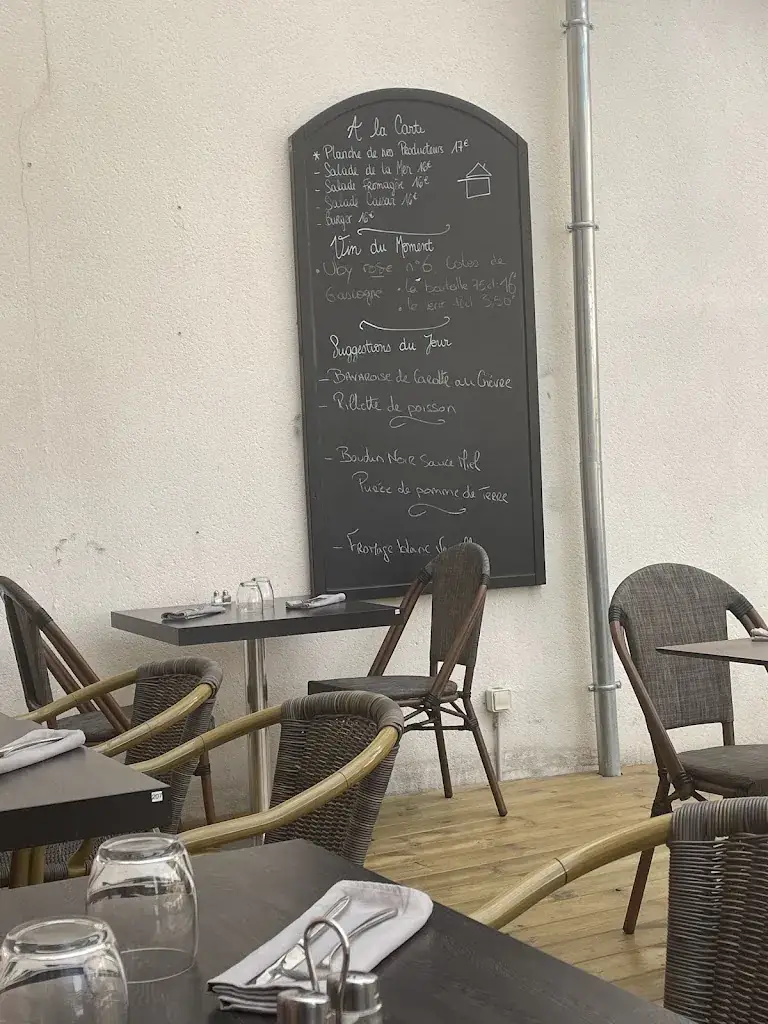 A la Carte
* Planche de nos Producteurs 17€
- Salade de la Mer 16€
- Salade Fromagère 16€
- Salade Caesar 16€
- Burger 16€
Vin du Moment
• Uby rosé n°6 Cotes de
Gascogne • la bouteille 75cl: 16€
• le verre 12cl 3,50€
Suggestions du Jour
- BAVAROISE de Carotte au Chèvre
- Rillette de poisson
- Boudin Noir Sauce Miel
Purée de pomme de Terre
- Fromage blanc
207